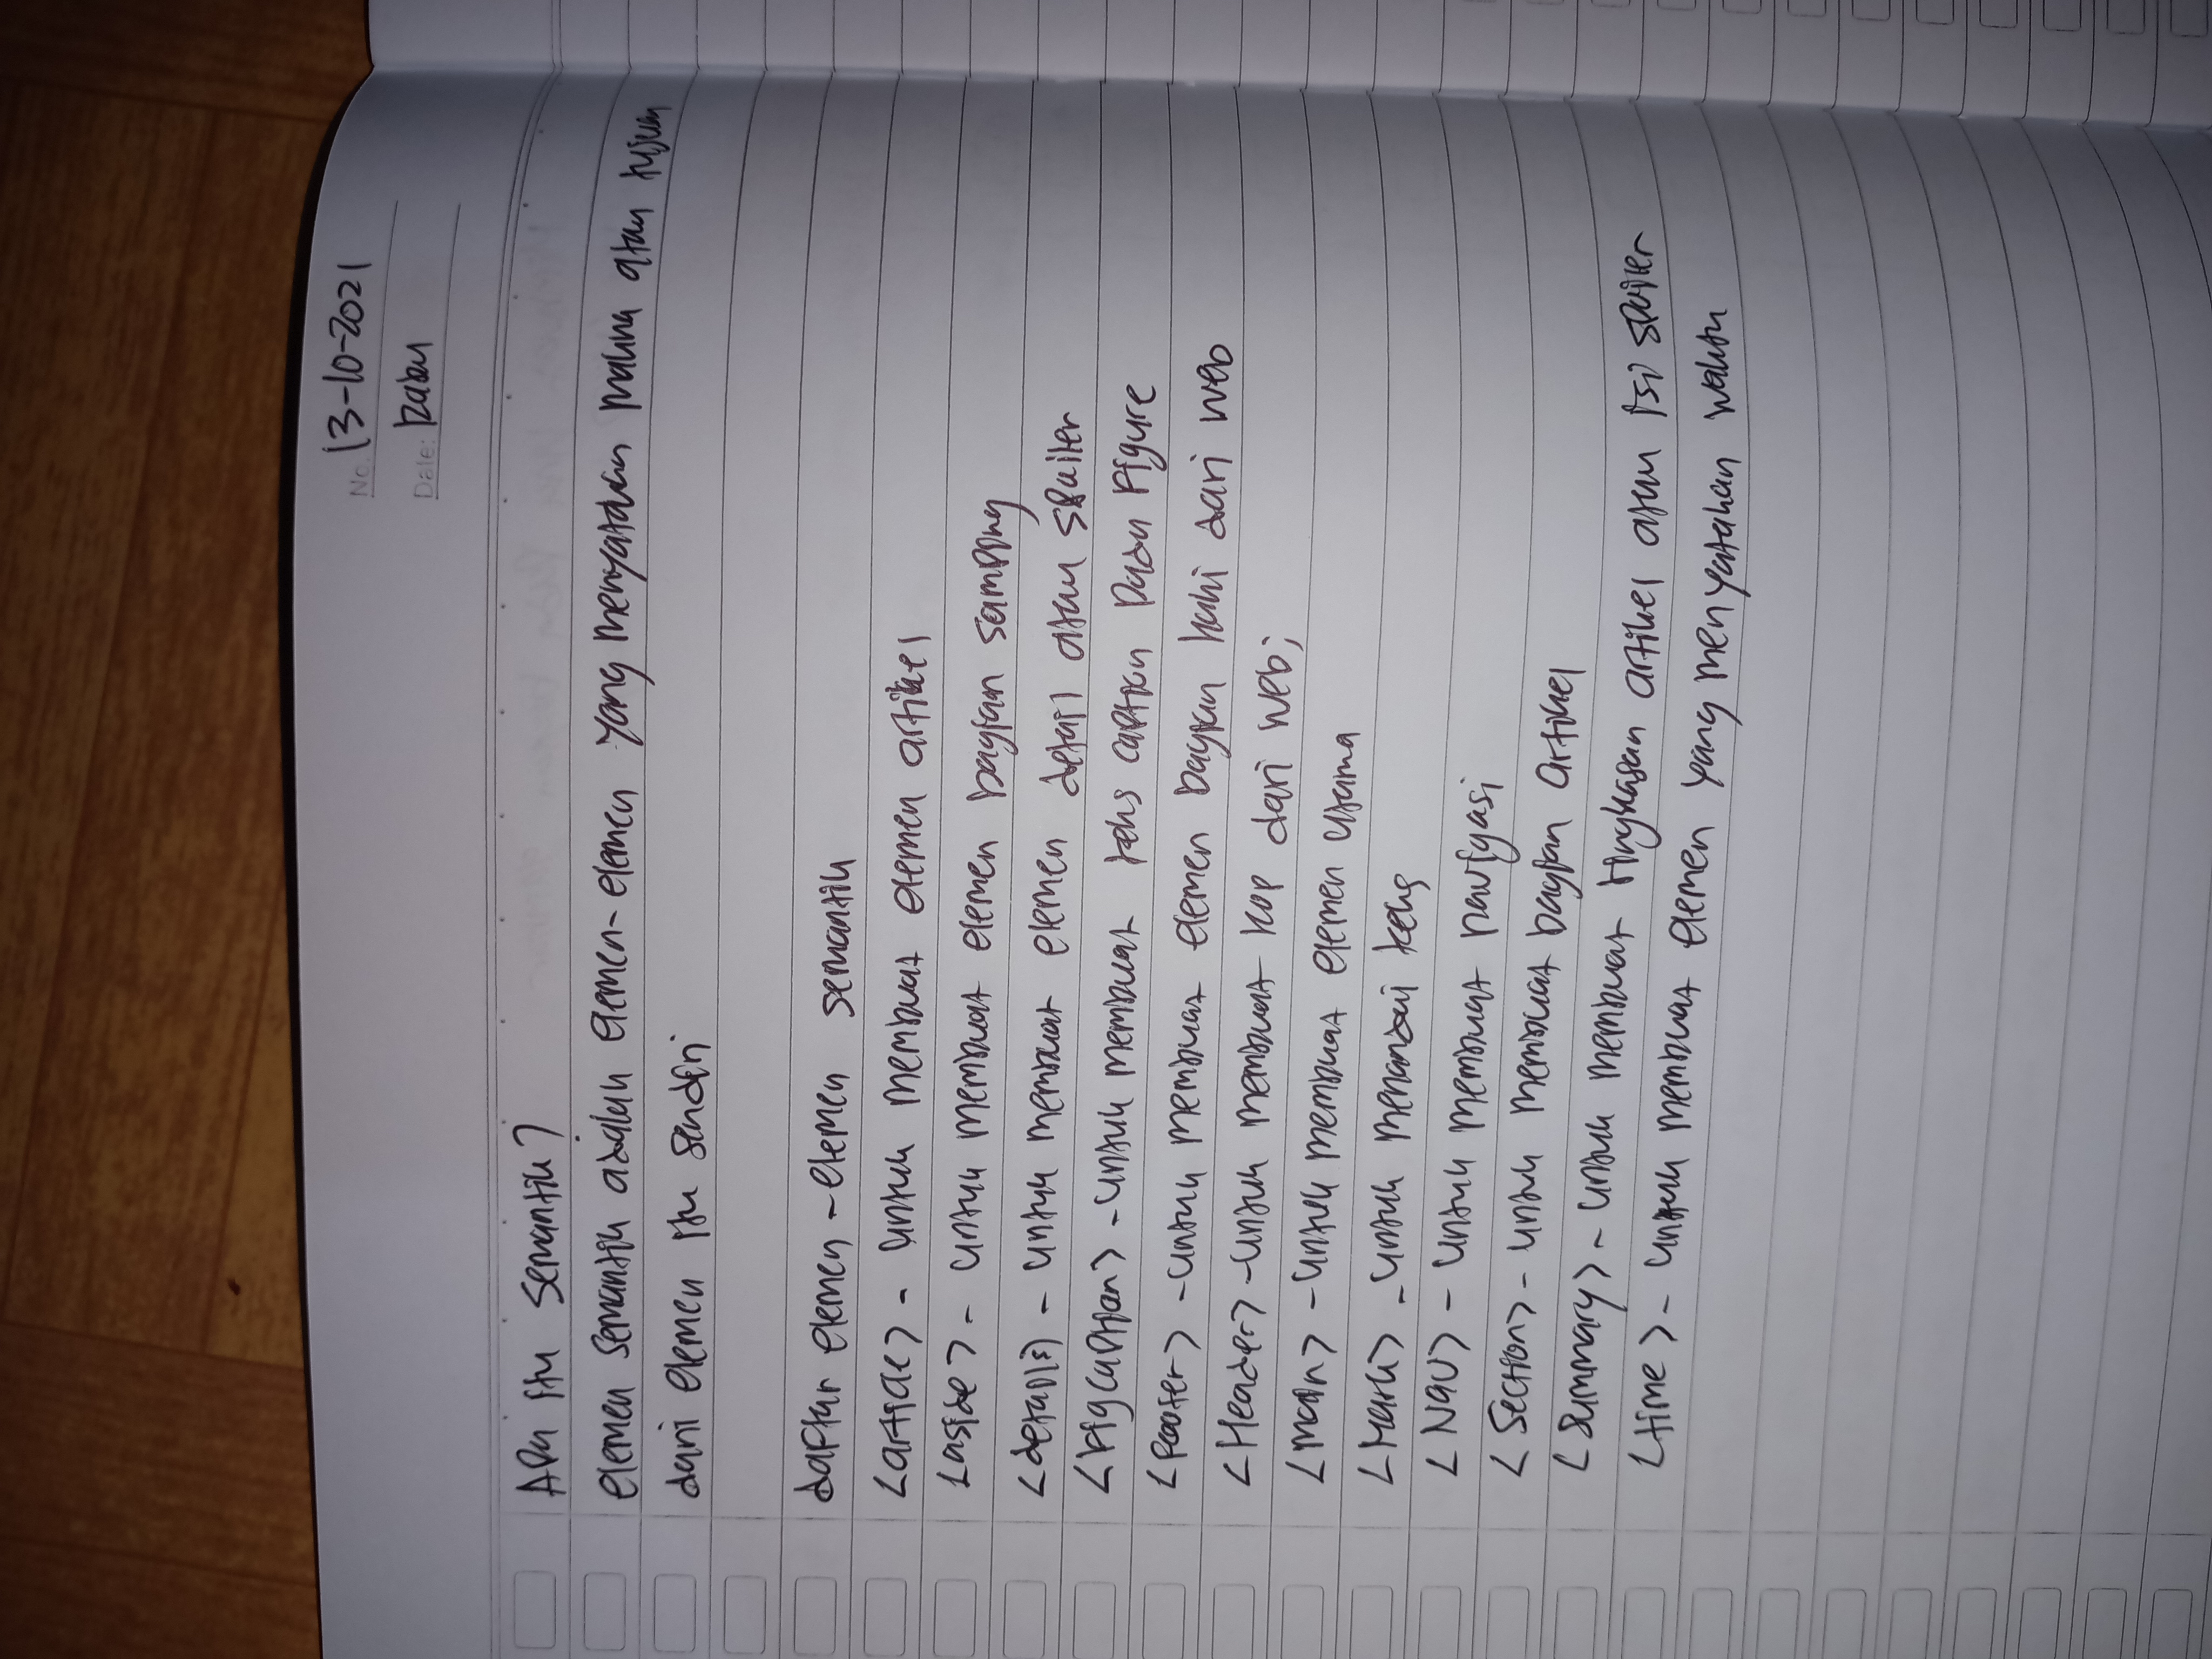 No. 13-10-2021
Date: Rabu
Apa itu semantik?
elemen semantik adalah elemen-elemen yang menyatakan makna atau tujuan
dari elemen itu sendiri
daftar elemen-elemen semantik
<article> - untuk membuat elemen artikel
<aside> - untuk membuat elemen bagian samping
<details> - untuk membuat elemen detail atau spoiler
<figcaption> - untuk membuat teks caption pada figure
<footer> - untuk membuat elemen bagian kaki dari web
<Header> - untuk membuat kop dari web;
<main> - untuk membuat elemen utama
<Mark> - untuk menandai teks
<Nav> - untuk membuat navigasi
<Section> - untuk membuat bagian artikel
<Summary> - untuk membuat ringkasan artikel atau isi spoiler
<time> - untuk membuat elemen yang menyatakan waktu